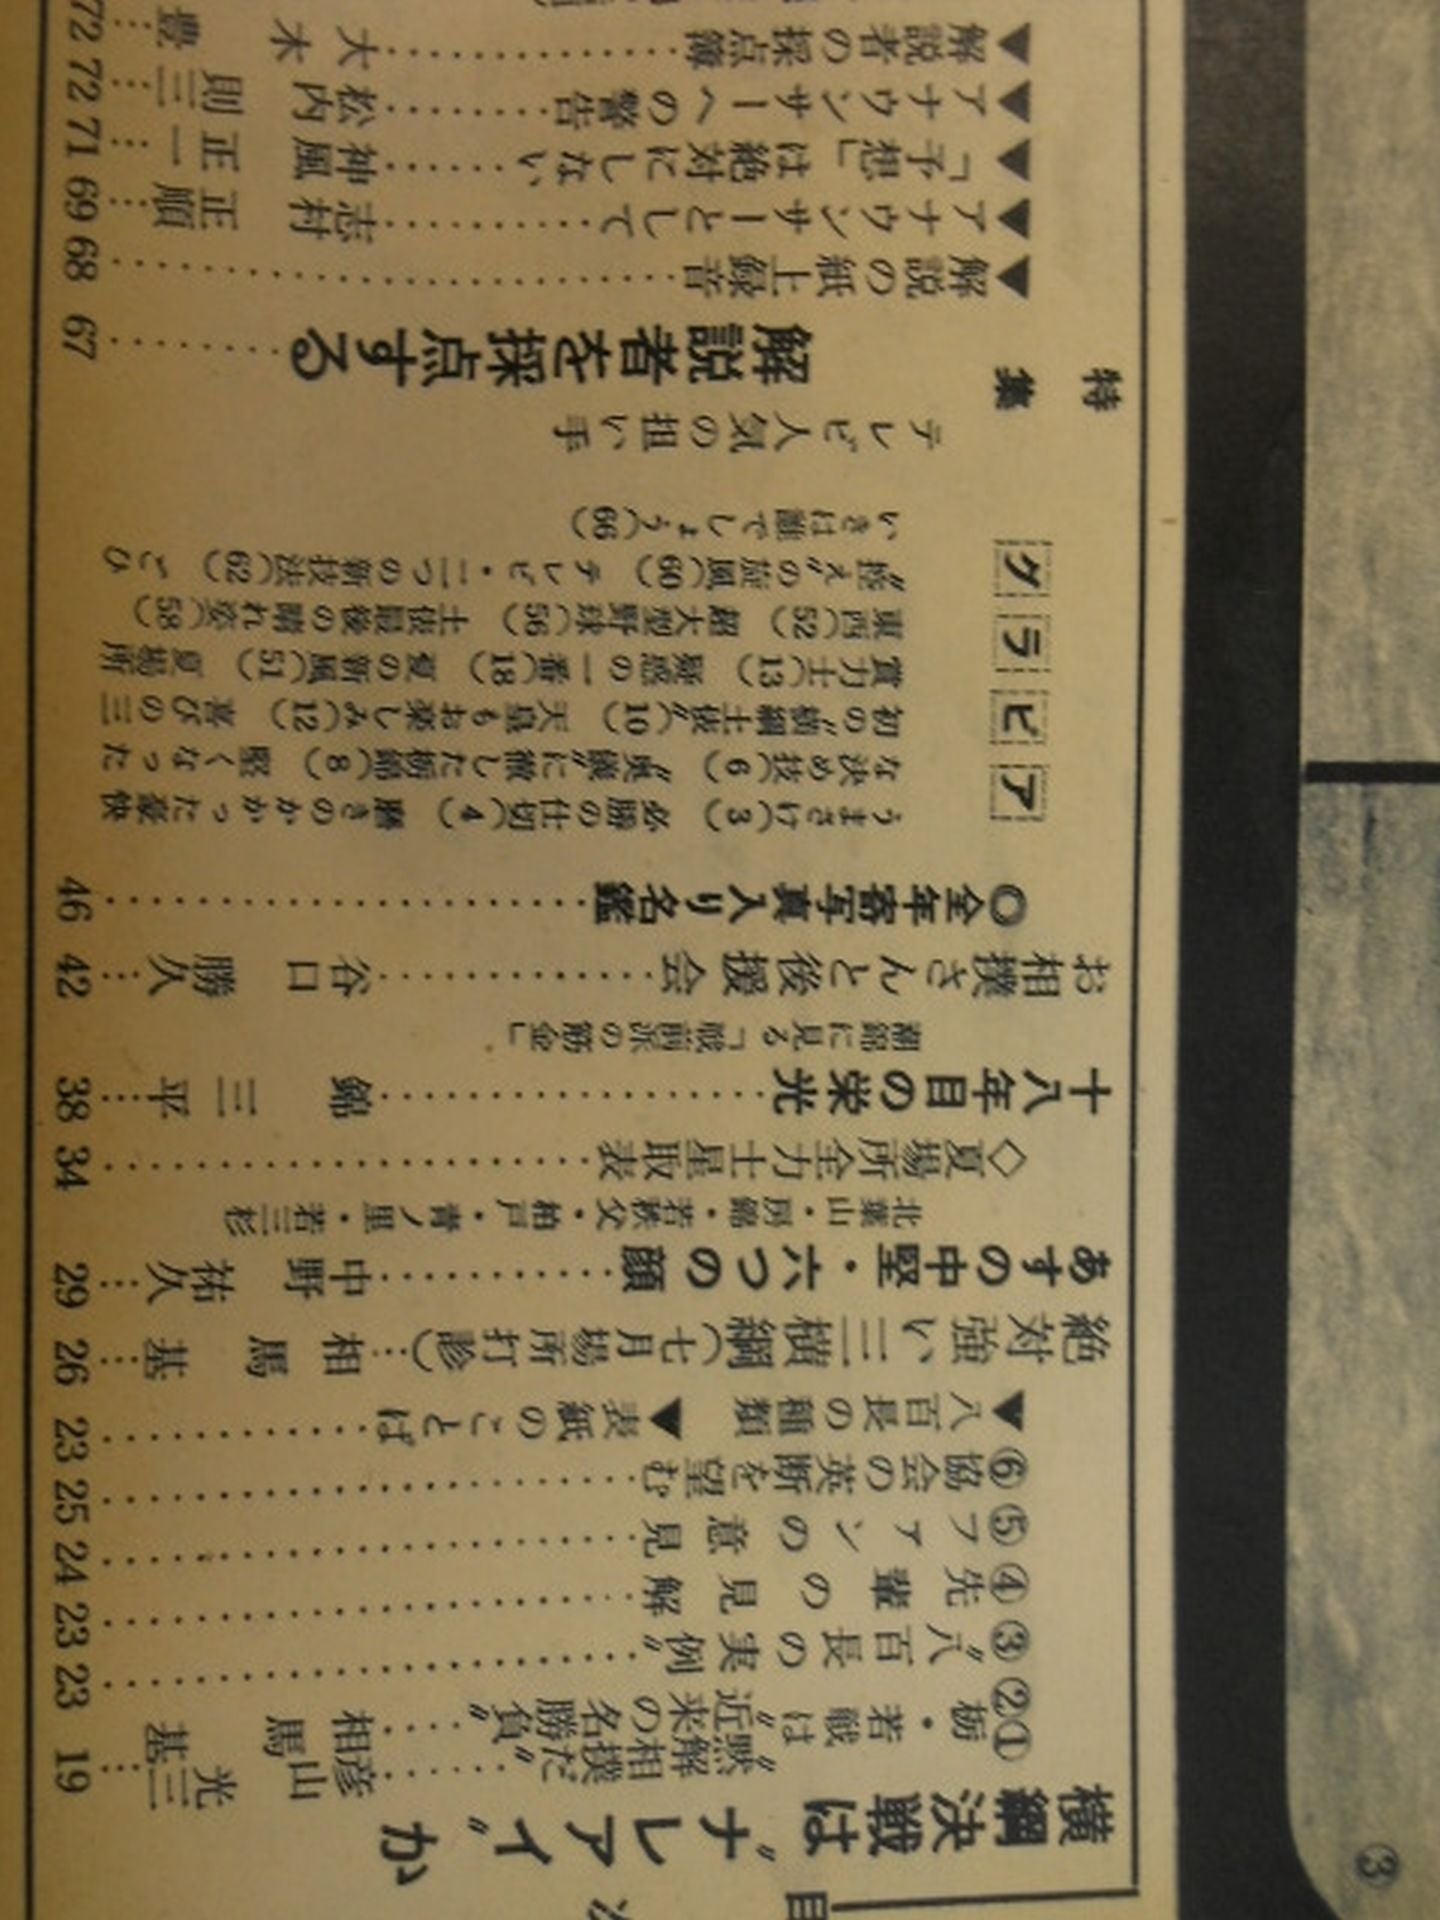 目次
横綱決戦は〝ナレアイ〟か
①〝黙解相撲だ〟……彦山光三…19
栃・若戦は〝近来の名勝負〟……相馬基
②
③〝八百長の実例〟……23
④先輩の見解……23
⑤ファンの意見……24
⑥協会の英断を望む……25
▼八百長の種類 ▼表紙のことば……23
絶対強い三横綱(七月場所打診)…相馬基…26
あすの中堅・六つの顔……中野祐久…29
北葉山・房錦・若秩父・柏戸・青ノ里・若三杉
◇夏場所全力士星取表……34
十八年目の栄光……錦三平…38
潮錦に見る「戦前派の筋金」
お相撲さんと後援会……谷口勝久…42
◎全年寄写真入り名鑑……46
グラビア
うまさけ(3) 必勝の仕切(4) 磨きのかかった豪快
な決め技(6) 〝奥儀〟に徹した栃錦(8) 堅くなった
初の〝横綱土俵〟(10) 天皇もお楽しみ(12) 喜びの三
賞力士(13) 疑惑の一番(18) 夏の新風(51) 夏場所
東西(52) 超大型野球(56) 土俵最後の晴れ姿(58)
〝控え〟の旋風(60) テレビ・二つの新技法(62) ごひ
いきは誰でしょう(66)
特集
テレビ人気の担い手
解説者を採点する……67
▼解説の紙上録音……68
▼アナウンサーとして……志村正順…69
▼「予想」は絶対にしない……神風正一…71
▼アナウンサーへの警告……松内則三…72
▼解説者の採点簿……大木豊…72
③